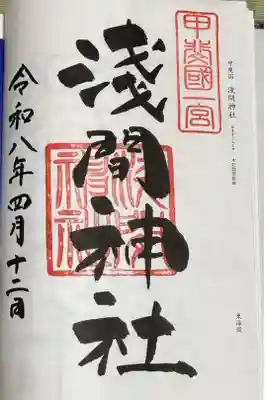 甲斐國一宮
甲斐国 浅間神社
東海道
淺間神社
令和八年四月十二日